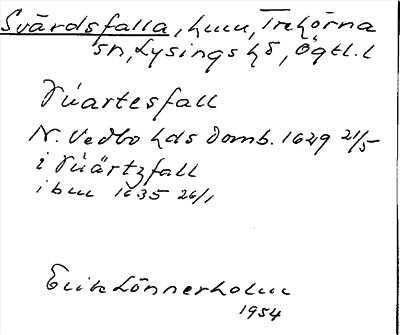 Svärdsfalla, hmn, Trehörna
sn, Lysings hd, Ögtl. l
Suartesfall
N. Vedbo hds domb. 1629 21/5
i Suärtzfall
ibm 1635 26/1
Erik Lönnerholm
1954